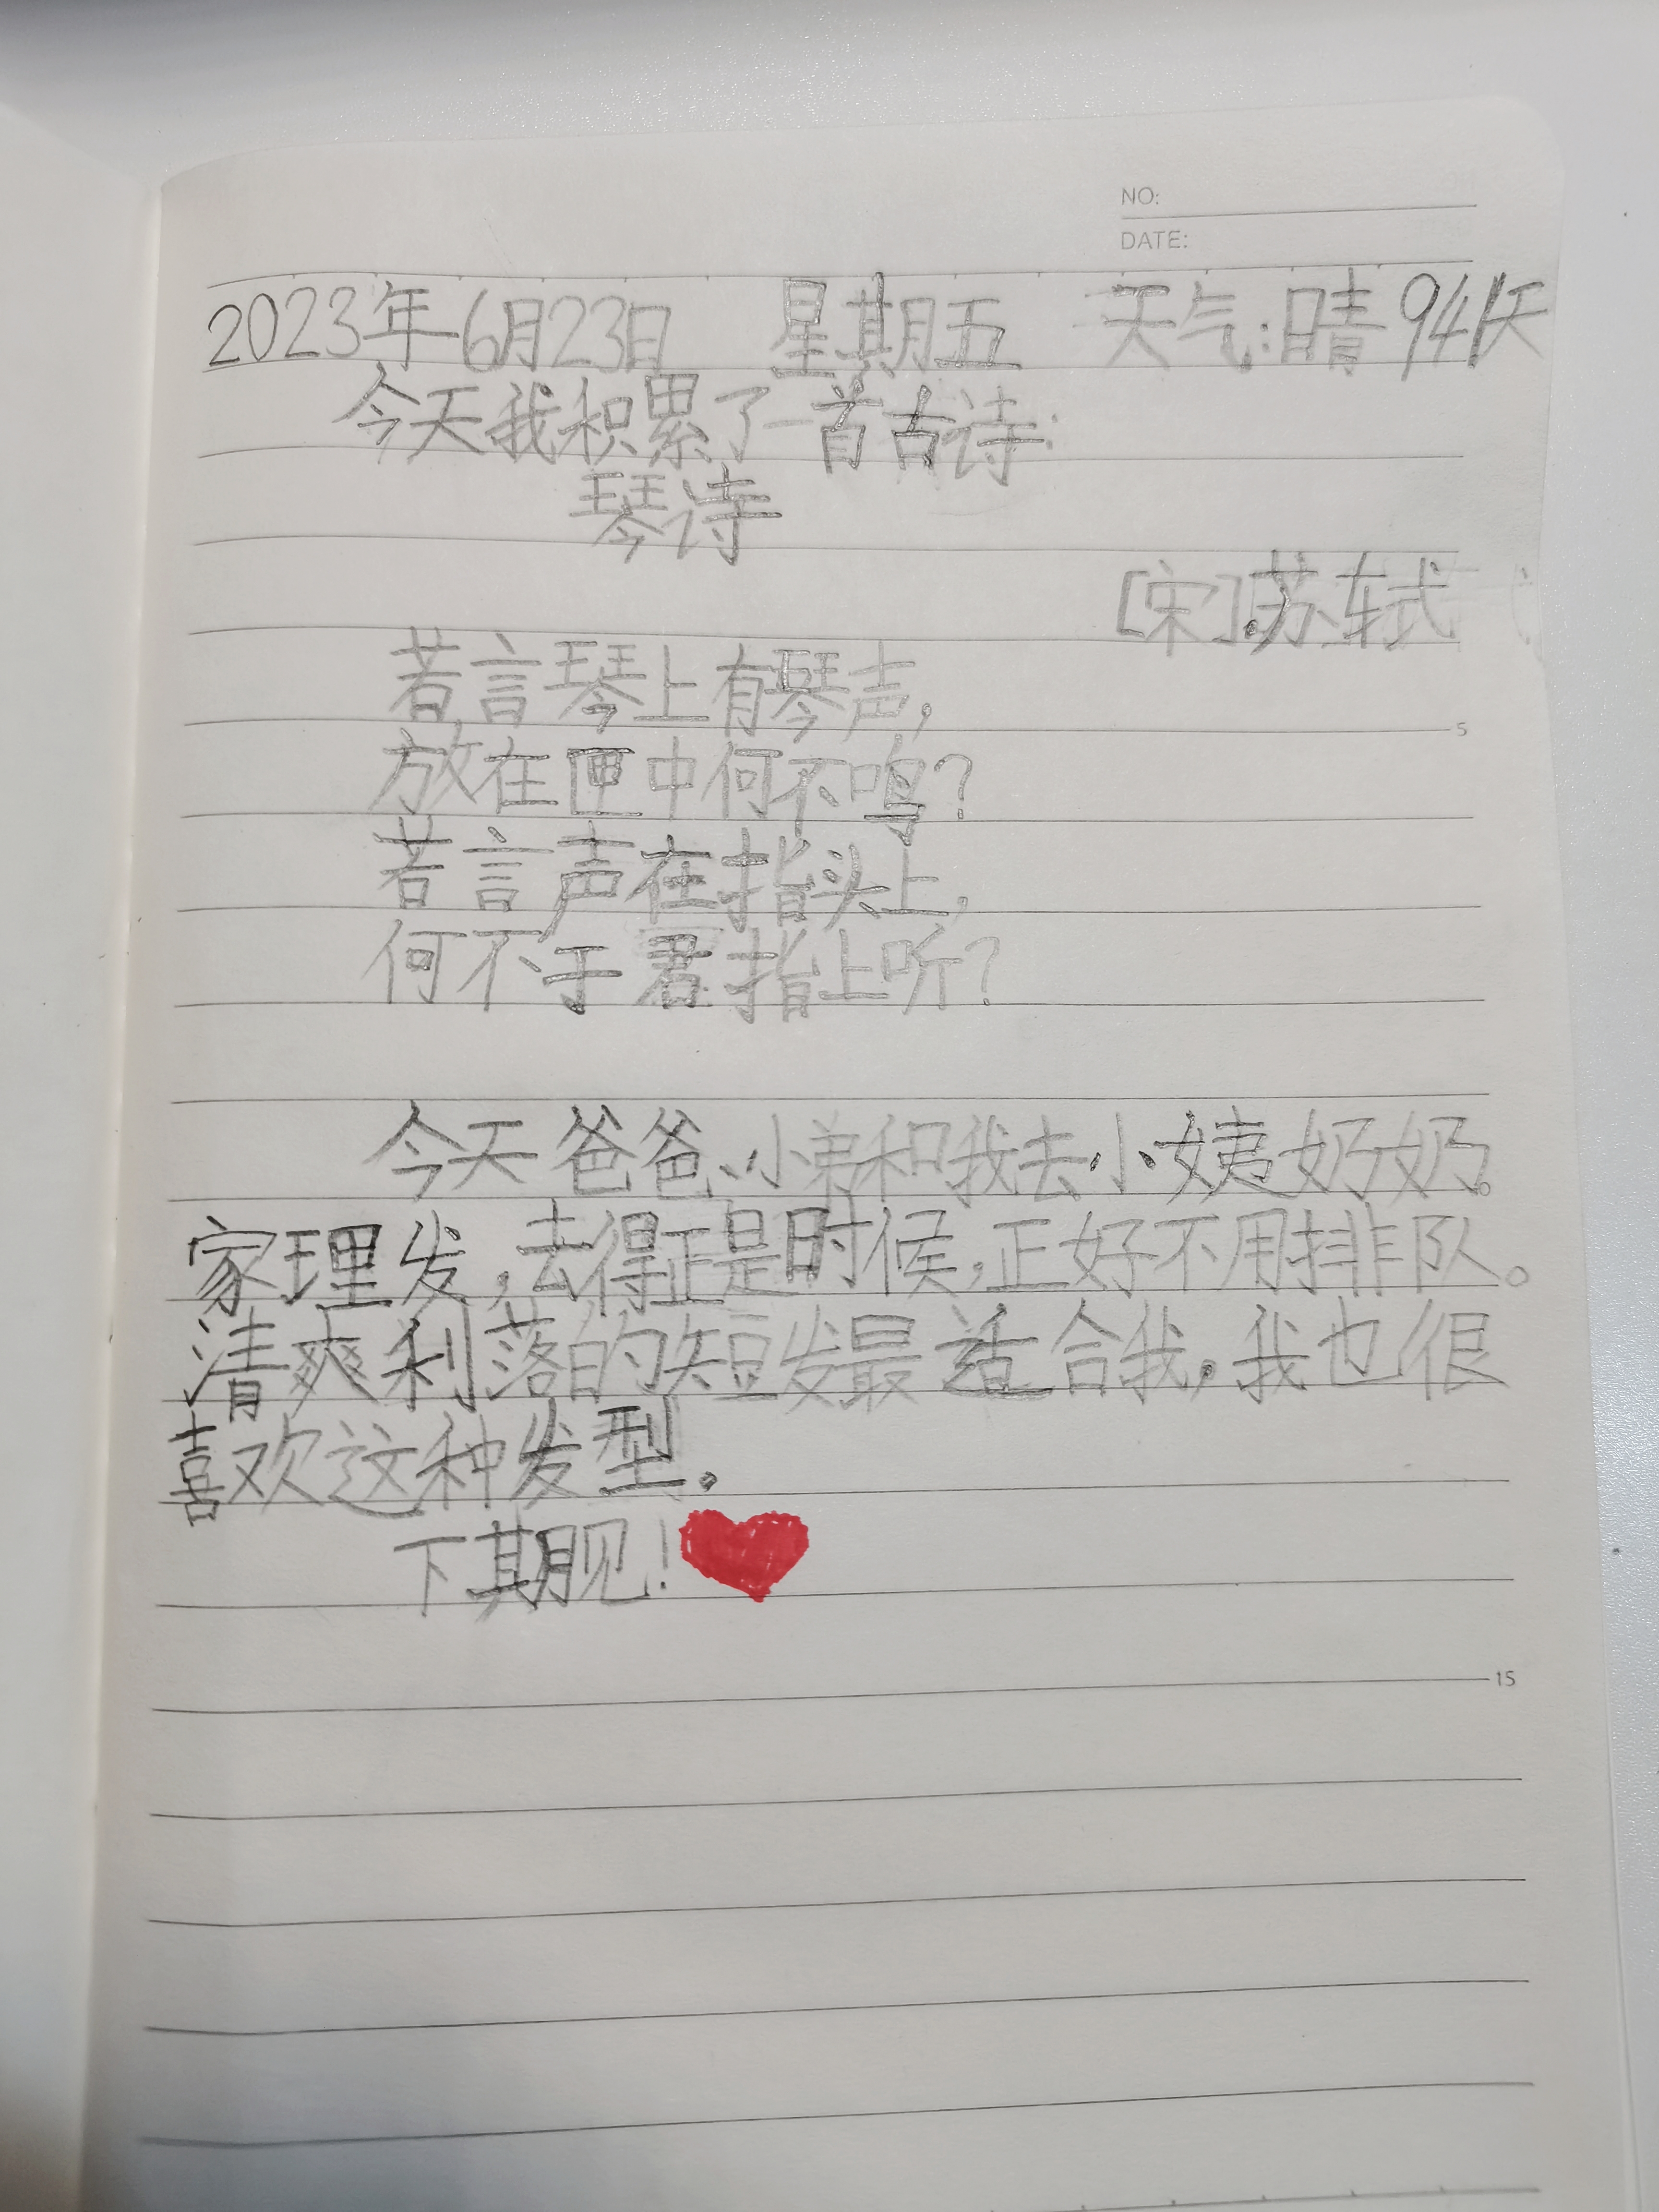 NO:
DATE:
2023年6月23日 星期五 天气:晴 941天
今天我积累了一首古诗:
琴诗
[宋].苏轼
若言琴上有琴声,
5
放在匣中何不鸣?
若言声在指头上,
何不于君指上听?
今天爸爸、小弟和我去小姨奶奶。
家理发,去得正是时候,正好不用排队。
清爽利落的短发最适合我,我也很
喜欢这种发型。
下期见!
15